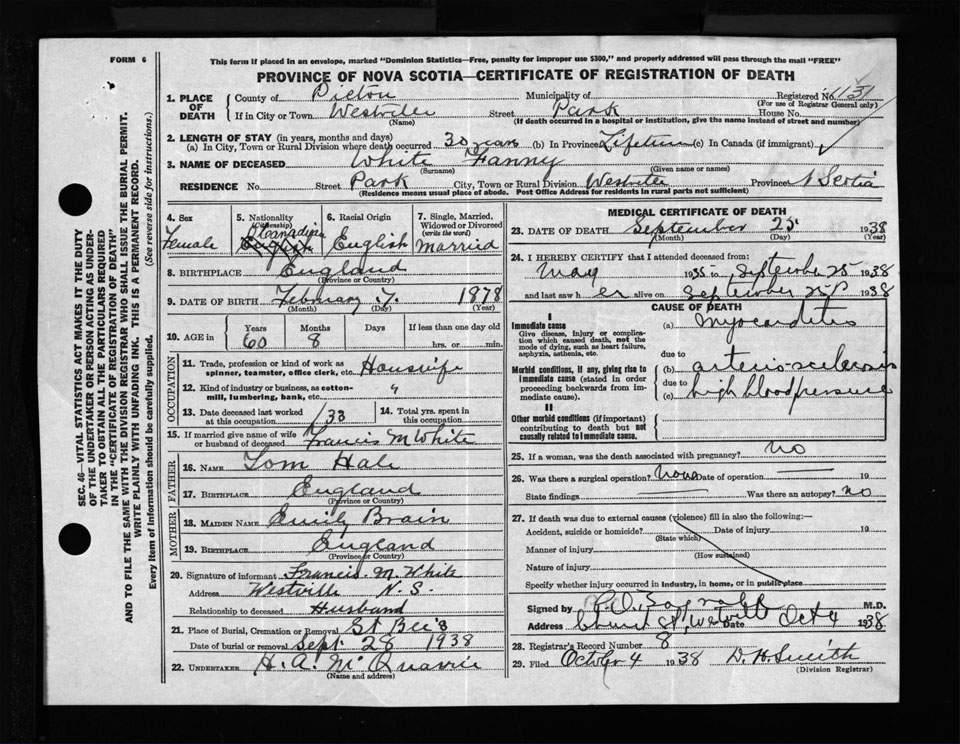 FORM 6
This form if placed in an envelope, marked "Dominion Statistics—Free, penalty for improper use $300," and properly addressed will pass through the mail "FREE"
PROVINCE OF NOVA SCOTIA—CERTIFICATE OF REGISTRATION OF DEATH
1. PLACE OF DEATH
County of Pictou Municipality of Registered No. 131
(For use of Registrar General only)
If in City or Town Westville Street Park House No.
(Name) (If death occurred in a hospital or institution, give the name instead of street and number)
2. LENGTH OF STAY (in years, months and days)
(a) In City, Town or Rural Division where death occurred 30 years (b) In Province Lifetime (c) In Canada (if immigrant)
3. NAME OF DECEASED White Fanny
(Surname) (Given name or names)
RESIDENCE No. Street Park City, Town or Rural Division Westville Province N Scotia
(Residence means usual place of abode. Post Office Address for residents in rural parts not sufficient)
4. Sex
Female
5. Nationality
(Citizenship)
Canadian
English
6. Racial Origin
English
7. Single, Married, Widowed or Divorced
(write the word)
Married
8. BIRTHPLACE England
(Province or Country)
9. DATE OF BIRTH February 7 1878
(Month) (Day) (Year)
10. AGE in
Years Months Days If less than one day old
60 8 hrs. or min.
OCCUPATION
11. Trade, profession or kind of work as spinner, teamster, office clerk, etc. Housewife
12. Kind of industry or business, as cotton-mill, lumbering, bank, etc. "
13. Date deceased last worked at this occupation 133
14. Total yrs. spent in this occupation
15. If married give name of wife or husband of deceased Francis M White
FATHER
16. NAME Tom Hale
17. BIRTHPLACE England
(Province or Country)
MOTHER
18. MAIDEN NAME Emily Brain
19. BIRTHPLACE England
(Province or Country)
20. Signature of informant Francis M. White
Address Westville N.S.
Relationship to deceased Husband
21. Place of Burial, Cremation or Removal St Bee's
Date of burial or removal Sept 28 1938
22. UNDERTAKER H. A. McQuarrie
(Name and address)
MEDICAL CERTIFICATE OF DEATH
23. DATE OF DEATH September 25 1938
(Month) (Day) (Year)
24. I HEREBY CERTIFY that I attended deceased from:
May 1935 to September 25 1938
and last saw her alive on September 1938
CAUSE OF DEATH
I
Immediate cause
Give disease, injury or complication which caused death, not the mode of dying, such as heart failure, asphyxia, asthenia, etc.
(a) Myocarditis
due to
Morbid conditions, if any, giving rise to immediate cause (stated in order proceeding backwards from immediate cause).
(b) arterio-sclerosis
due to
(c) high blood pressure
II
Other morbid conditions (if important) contributing to death but not causally related to immediate cause.
25. If a woman, was the death associated with pregnancy? no
26. Was there a surgical operation? none Date of operation 19
State findings Was there an autopsy? no
27. If death was due to external causes (violence) fill in also the following:—
Accident, suicide or homicide? Date of injury 19
(State which)
Manner of injury
(How sustained)
Nature of injury
Specify whether injury occurred in industry, in home, or in public place
Signed by M.D.
Address Church St, Westville Date Oct 4 1938
28. Registrar's Record Number 8
29. Filed October 4 1938 D. H. Smith
(Division Registrar)
SEC. 46—VITAL STATISTICS ACT MAKES IT THE DUTY
OF THE UNDERTAKER OR PERSON ACTING AS UNDER-
TAKER TO OBTAIN ALL THE PARTICULARS REQUIRED
IN THE "CERTIFICATE OF REGISTRATION OF DEATH"
AND TO FILE THE SAME WITH THE DIVISION REGISTRAR WHO SHALL ISSUE THE BURIAL PERMIT.
WRITE PLAINLY WITH UNFADING INK. THIS IS A PERMANENT RECORD.
Every item of information should be carefully supplied. (See reverse side for instructions.)